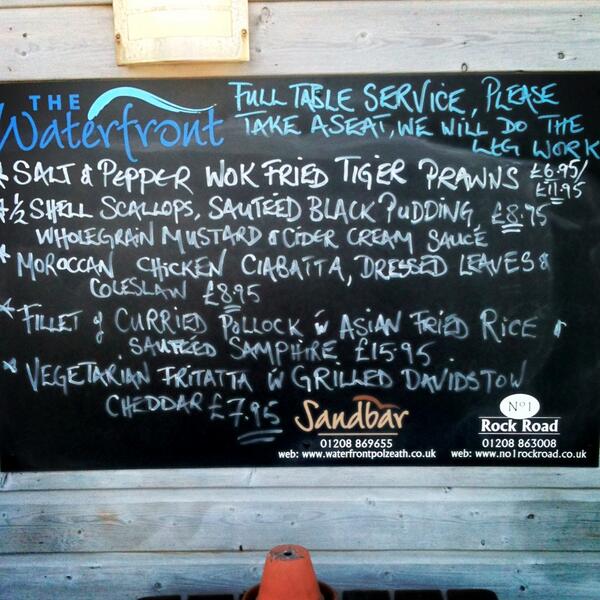 THE
Waterfront
FULL TABLE SERVICE, PLEASE
TAKE A SEAT, WE WILL DO THE
LEG WORK
* SALT & PEPPER WOK FRIED TIGER PRAWNS £6.95/
£11.95
* ½ SHELL SCALLOPS, SAUTÉED BLACK PUDDING, £8.95
WHOLEGRAIN MUSTARD & CIDER CREAM SAUCE
* MOROCCAN CHICKEN CIABATTA, DRESSED LEAVES &
COLESLAW £8.95
* FILLET of CURRIED POLLOCK w ASIAN FRIED RICE &
SAUTÉED SAMPHIRE £15.95
* VEGETARIAN FRITATTA w GRILLED DAVIDSTOW
CHEDDAR £7.95
Sandbar
01208 869655
web: www.waterfrontpolzeath.co.uk
No1
Rock Road
01208 863008
web: www.no1rockroad.co.uk